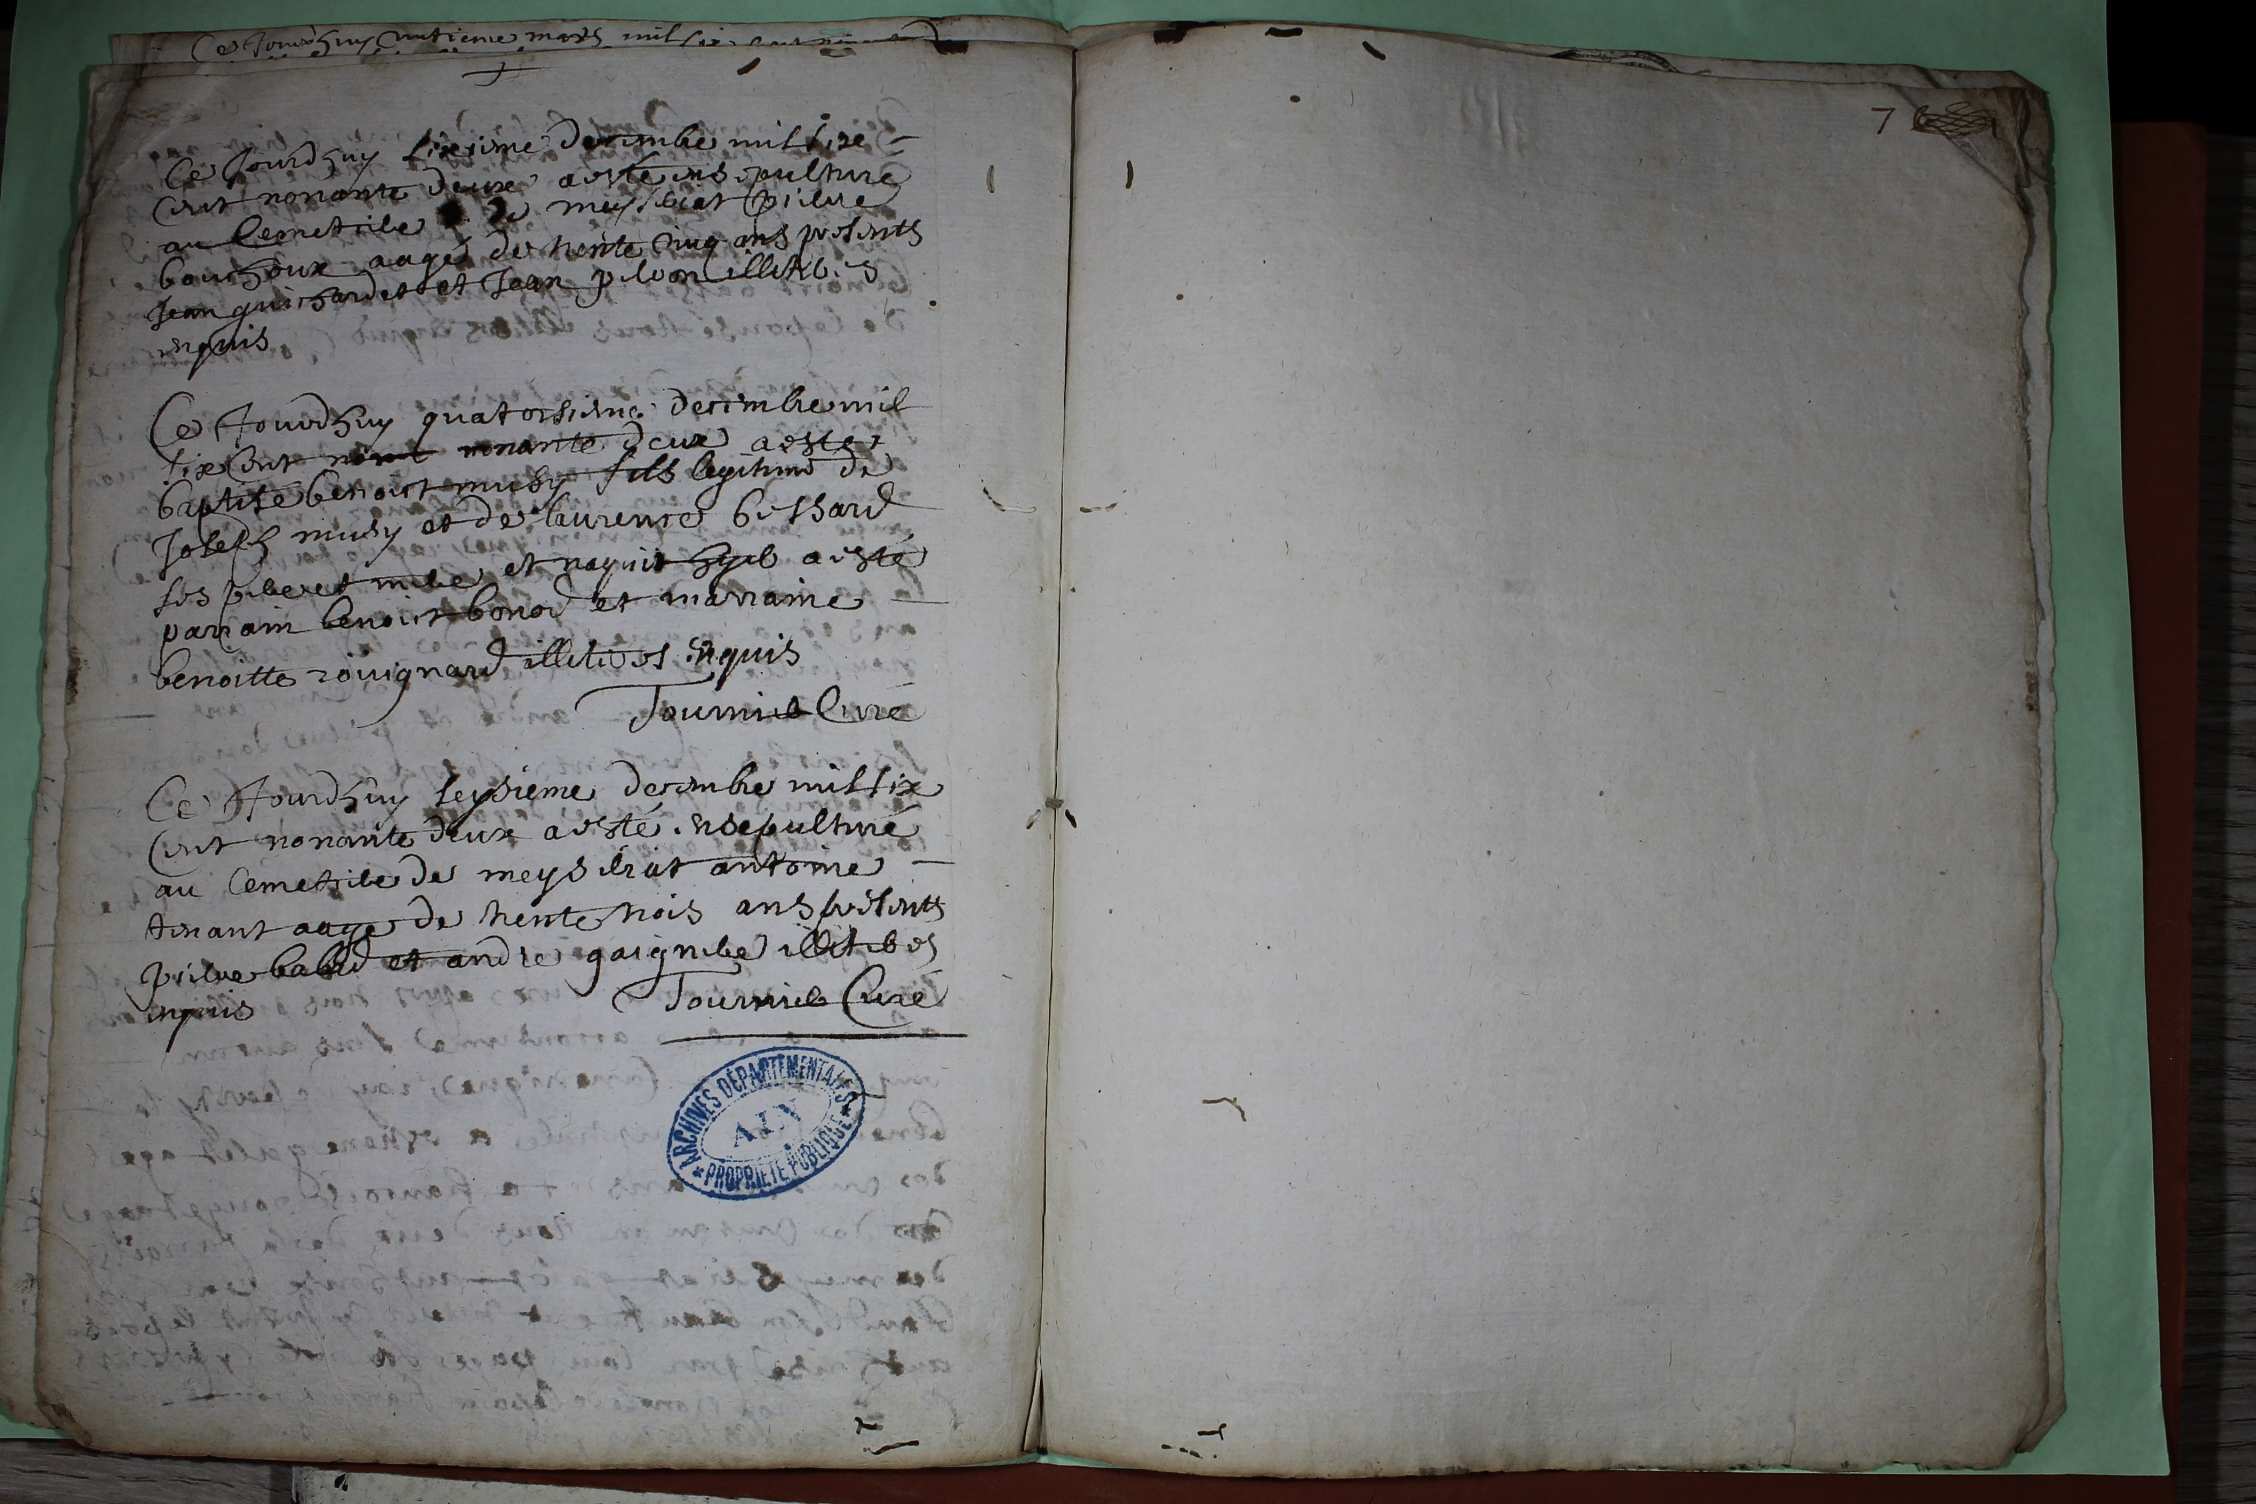 Ce Jourdhuy vintieme mars mil six cent
Ce Jourdhuy sixieme decembre mil sixe
cent nonante deux a esté ensepulturé
au cemetiere de meysseriat pierre
bouchoux aagé de trente cinq ans presents
Jean guichardet et Jean pilvon illiteres
enquis
Ce Jourdhuy quatorsieme decembre mil
six cent nonante deux a este
baptisé benoict musy fils legitime de
Joseph musy et de laurence bessard
ses pere et mere et naquit hyer a esté
parrain benoict bonod et marraine
benoitte rovignard illiteres enquis
Tournier Curé
Ce Jourdhuy seysieme decembre mil six
cent nonante deux a esté ensepulturé
au cemetiere de meyseriat antoine
tenant aagé de trente trois ans presents
pierre et andre gaigniere illiteres
enquis Tournier Curé
ARCHIVES DÉPARTEMENTALES
AIN
* PROPRIÉTÉ PUBLIQUE *
7